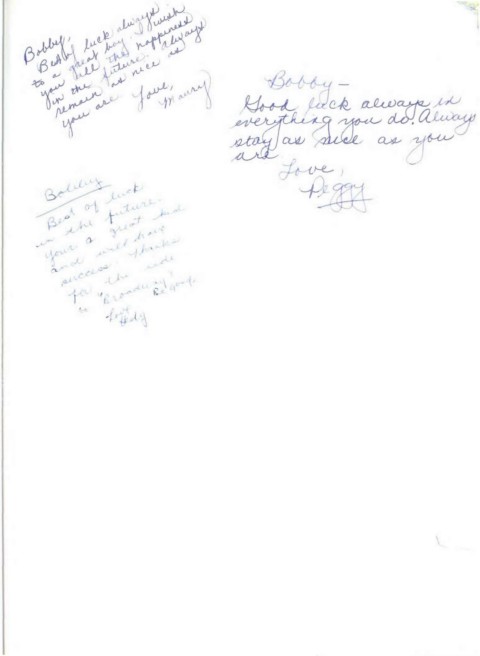 Bobby,
Best of luck always
to a great boy. I wish
you all the happiness
in the future. Always
remain as nice as
you are. Love,
Maury
Bobby—
Good luck always in
everything you do. Always
stay as nice as you
are.
Love,
Peggy
Bobby
Best of luck
in the future.
Your a great kid
and will have
success. Thanks
for the ride
to "Broadway"!
Love